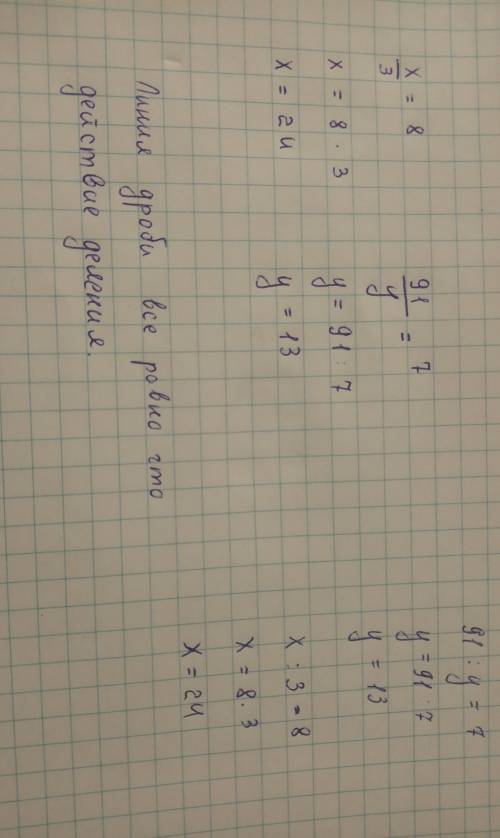 x/3 = 8
x = 8 · 3
x = 24
91/y = 7
y = 91 : 7
y = 13
91 : y = 7
y = 91 · 7
y = 13
x : 3 = 8
x = 8 · 3
x = 24
Линия дроби все равно что
действие деления.